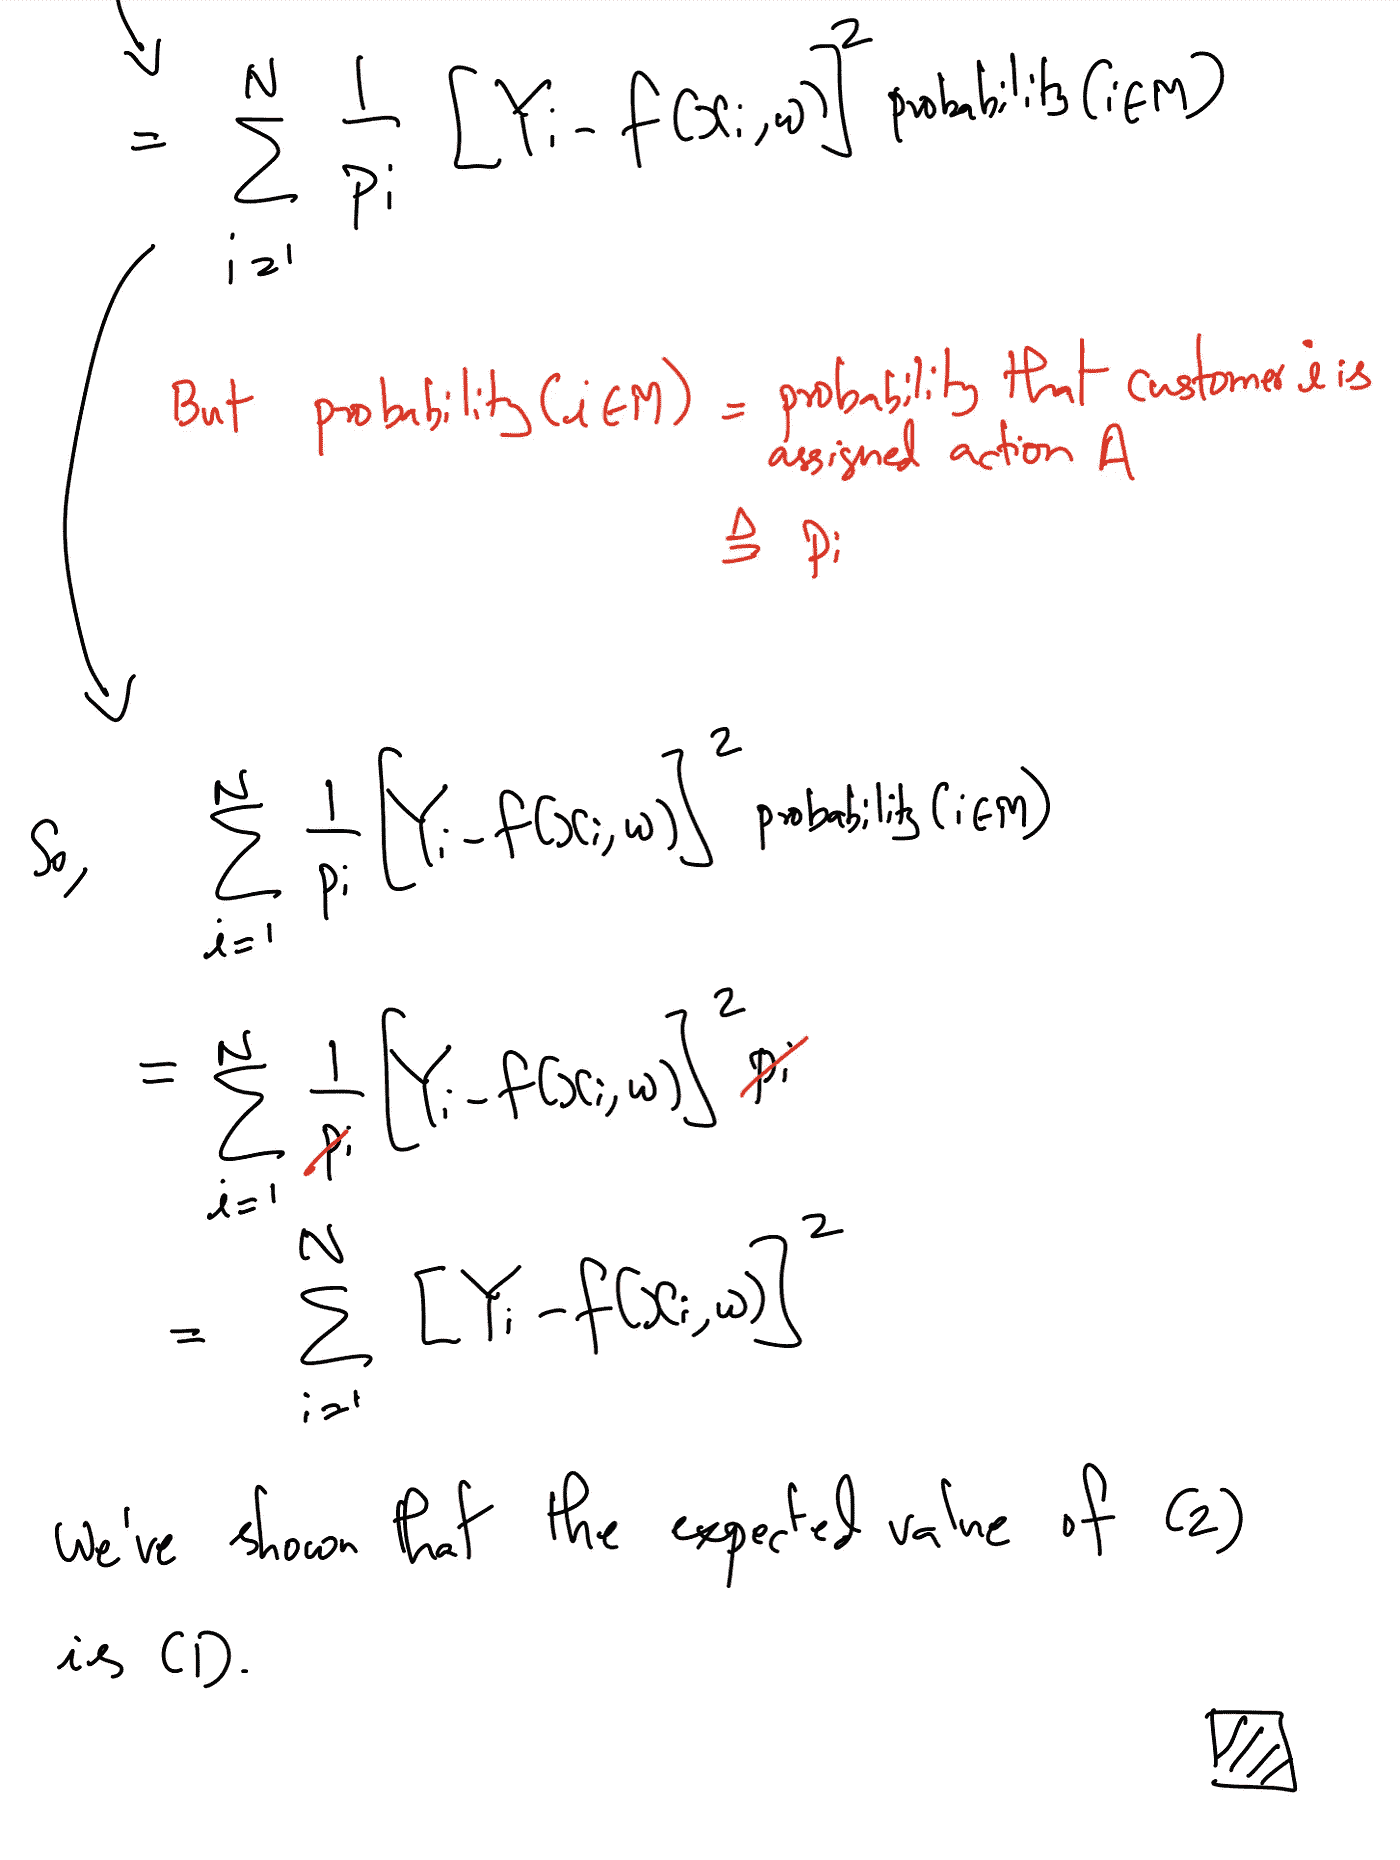 = \sum_{i=1}^{N} \frac{1}{p_i} [Y_i - f(x_i, w)]^2 probability (i∈M)
But probability (i∈M) = probability that customer i is
assigned action A
≜ p_i
So, \sum_{i=1}^{N} \frac{1}{p_i} [Y_i - f(x_i, w)]^2 probability (i∈M)
= \sum_{i=1}^{N} \frac{1}{p_i} [Y_i - f(x_i, w)]^2 p_i
= \sum_{i=1}^{N} [Y_i - f(x_i, w)]^2
We've shown that the expected value of (2)
is (1).